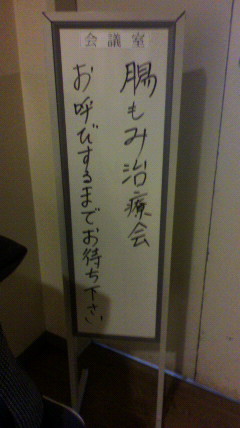 会議室
腸もみ治療会
お呼びするまでお待ち下さい